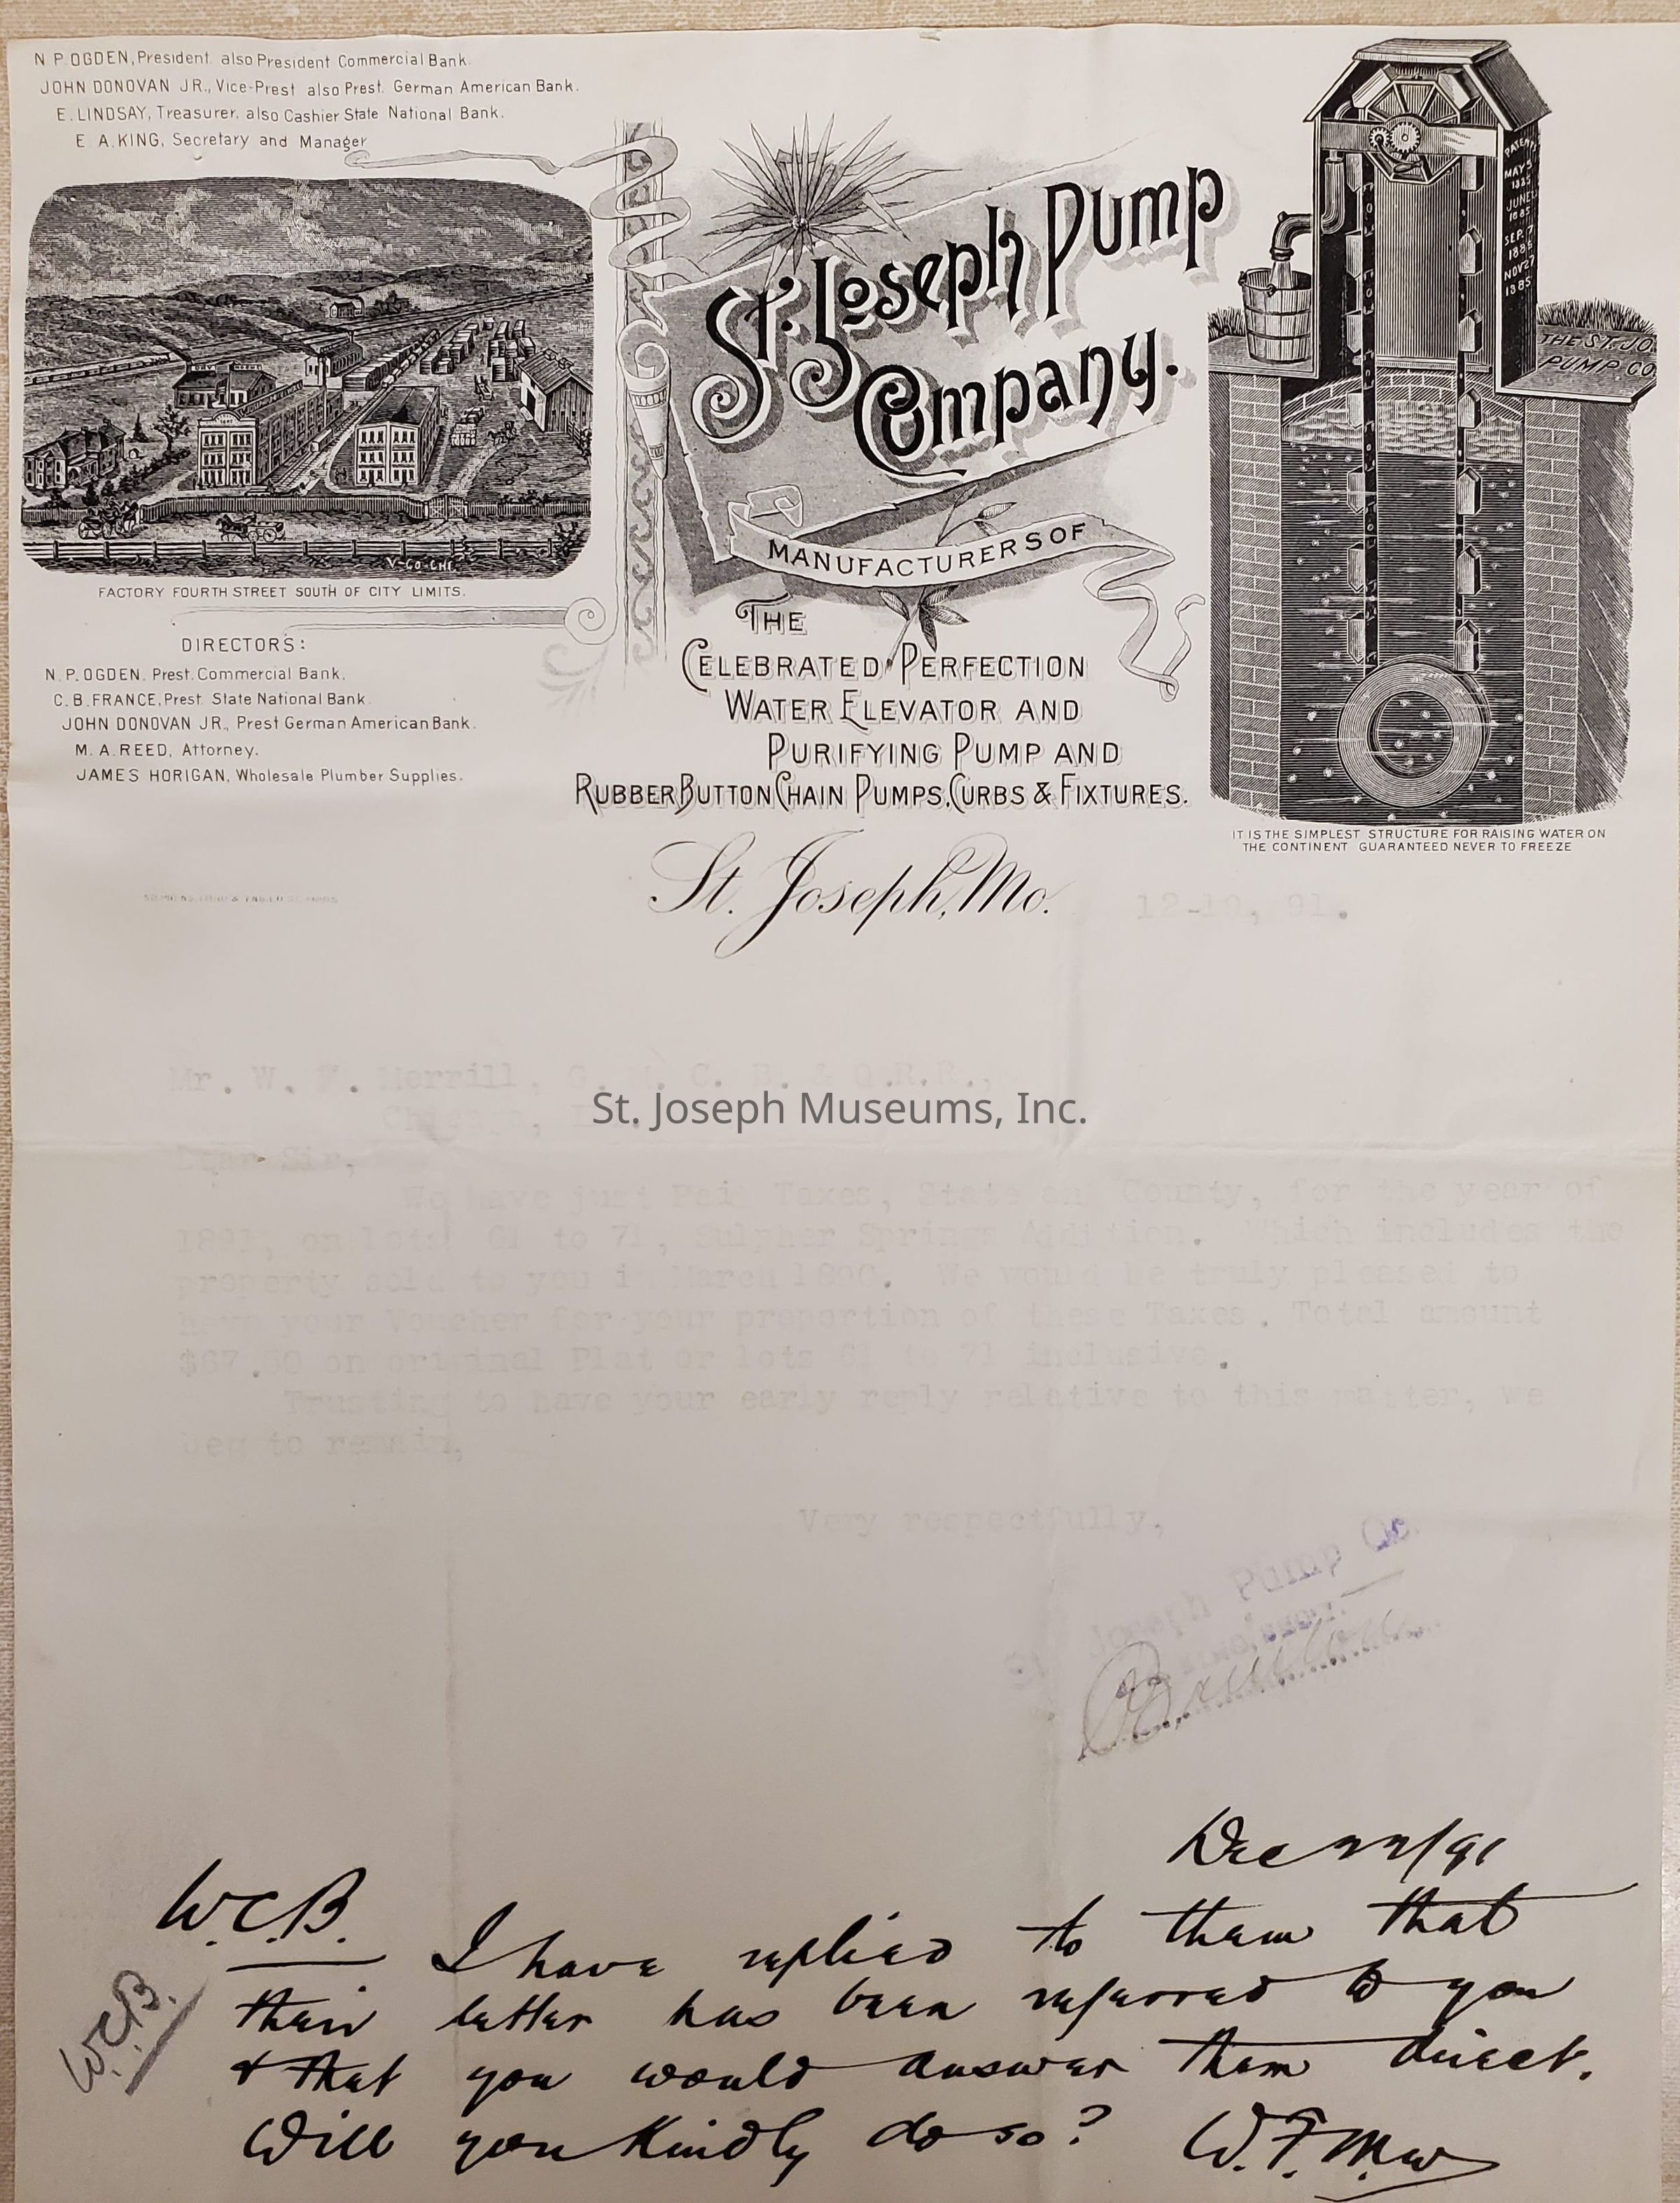 N. P. OGDEN, President also President Commercial Bank.
JOHN DONOVAN JR., Vice-Prest also Prest. German American Bank.
E. LINDSAY, Treasurer, also Cashier State National Bank.
E. A. KING, Secretary and Manager
V-CO-CHI.
FACTORY FOURTH STREET SOUTH OF CITY LIMITS.
DIRECTORS:
N. P. OGDEN, Prest. Commercial Bank,
C. B. FRANCE, Prest. State National Bank.
JOHN DONOVAN JR., Prest German American Bank.
M. A. REED, Attorney.
JAMES HORIGAN, Wholesale Plumber Supplies.
St. Joseph Pump
Company.
MANUFACTURERS OF
THE
CELEBRATED PERFECTION
WATER ELEVATOR AND
PURIFYING PUMP AND
RUBBER BUTTON CHAIN PUMPS, CURBS & FIXTURES.
PATENT
MAY 5
1885
JUNE
1885
SEP. 7
1885
NOV 27
1885
THE ST. JO.
PUMP CO.
IT IS THE SIMPLEST STRUCTURE FOR RAISING WATER ON
THE CONTINENT GUARANTEED NEVER TO FREEZE
St. Joseph, Mo. 12-19, 91.
Mr. W. F. Merrill, G. M. C. B. & Q.R.R.,
St. Joseph Museums, Inc.
Dear Sir,
We have just Paid Taxes, State and County, for the year of
1891, on lots 61 to 71, Sulpher Springs Addition. Which includes the
property sold to you in March 1890. We would be truly pleased to
have your Voucher for your proportion of these Taxes. Total amount
on original Plat or lots 61 to 71 inclusive.
Trusting to have your early reply relative to this matter, we
beg to remain,
Very respectfully,
St. Joseph Pump Co.
Dec 22/91
W.C.B. I have replied to them that
their letter has been referred to you
& that you would answer them direct.
Will you kindly do so? W.F.M.
W.C.B.